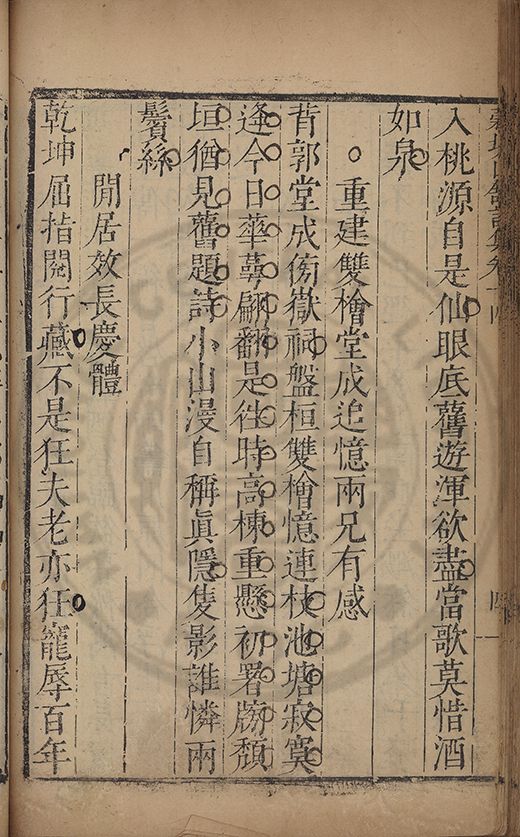 入桃源自是仙眼底舊遊渾欲盡當歌莫惜酒
如泉
重建雙檜堂成追憶兩兄有感
背郭堂成傍嶽祠盤桓雙檜憶連枝池塘寂寞
逢今日華萼翩翩是往時高棟重懸初署牓頹
垣猶見舊題詩小山漫自稱眞隱隻影誰憐兩
鬢絲
閒居效長慶體
乾坤屈指閱行藏不是狂夫老亦狂寵辱百年